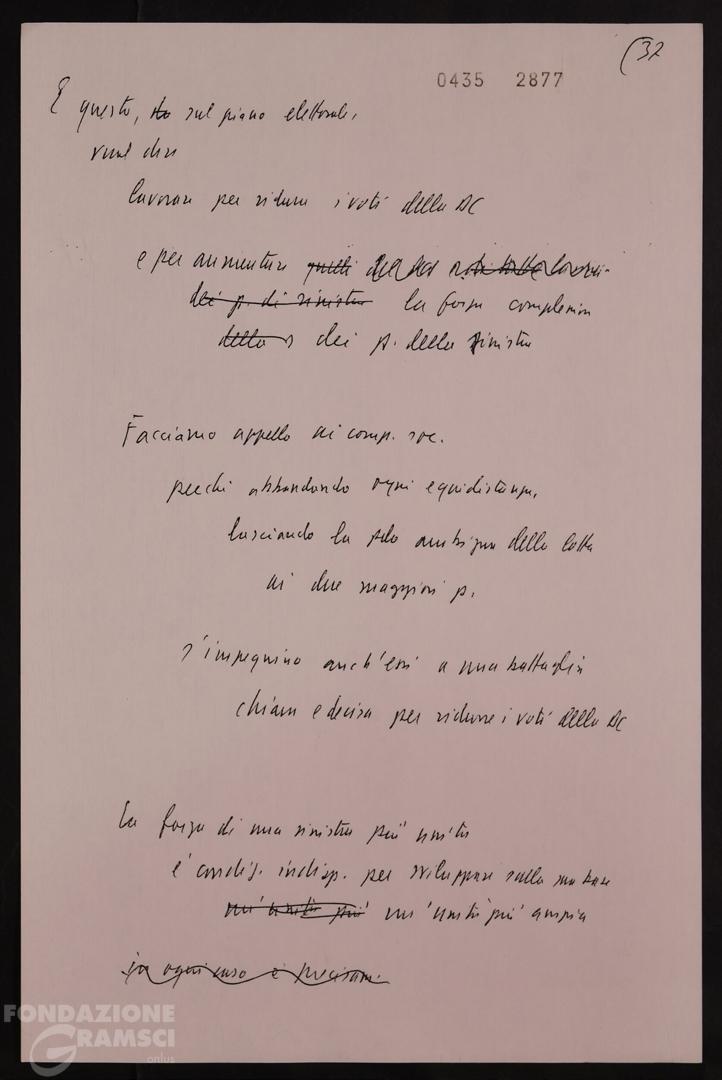 (37
0435 2877
E questo, sul piano elettorale,
vuol dire
lavorare per ridurre i voti della DC
e per aumentare quelli
dei p. di sinistra la forza complessiva
della dei p. della sinistra
Facciamo appello ai comp. soc.
perché abbandonando ogni equidistanza,
lasciando la ambigua della lotta
ai due maggiori p.
s'impegnino anch'essi a una battaglia
chiara e decisa per ridurre i voti della DC
La forza di una sinistra più unita
è condiz. indisp. per sviluppare sulla sua base
un'unità più un'unità più ampia
in ogni caso è
FONDAZIONE
GRAMSCI
onlus